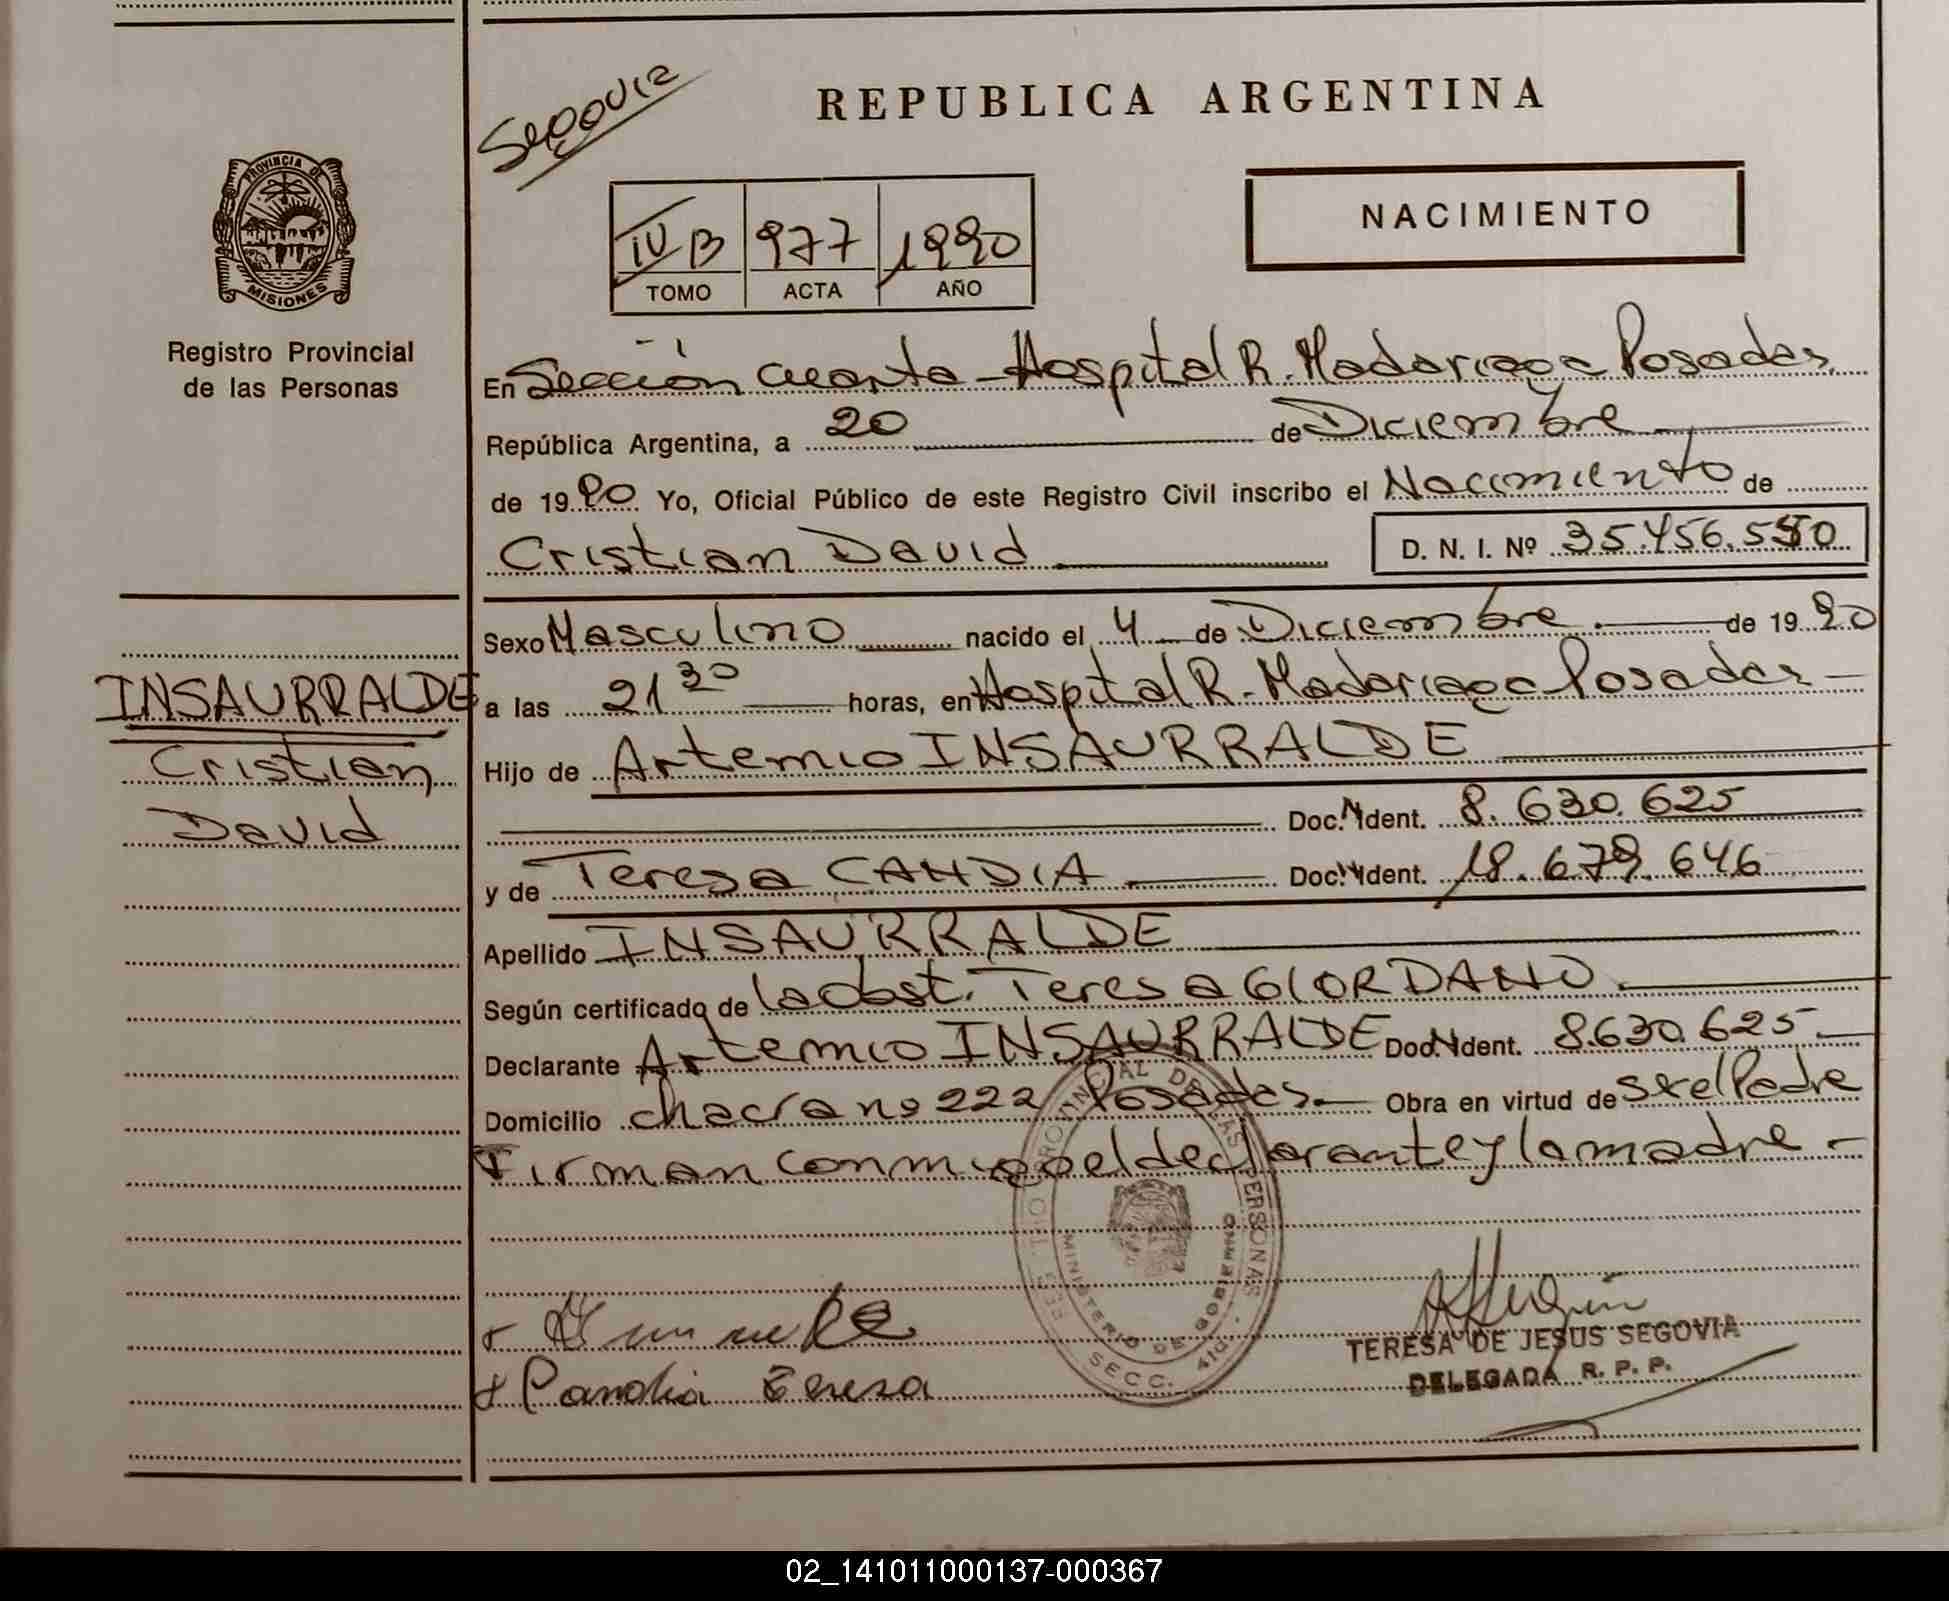 Segovia
REPUBLICA ARGENTINA
PROVINCIA DE
MISIONES
Registro Provincial
de las Personas
IV B 977 1990
TOMO ACTA AÑO
NACIMIENTO
En Sección cuarta - Hospital R. Madariaga Posadas
República Argentina, a 20 de Diciembre
de 1990 Yo, Oficial Público de este Registro Civil inscribo el Nacimiento de
Cristian David D. N. I. Nº 35.456.550
Sexo Masculino nacido el 4 de Diciembre. de 1990
INSAURRALDE
Cristian
David
a las 21 30 horas, en Hospital R. Madariaga Posadas -
Hijo de Artemio INSAURRALDE
Doc. N Ident. 8.630.625
y de Teresa CANDIA Doc. N Ident. 18.679.646
Apellido INSAURRALDE
Según certificado de la obst. Teresa GIORDANO.
Declarante Artemio INSAURRALDE Doc. N Ident. 8.630.625.-
Domicilio chacra nº 222 Posadas.- Obra en virtud de ser el Padre
Firman conmigo el declarante y la madre -
PROVINCIAL DE LAS PERSONAS
MINISTERIO DE GOBIERNO
SECC. 4ta.
Candia Teresa
TERESA DE JESUS SEGOVIA
DELEGADA R. P. P.
02_141011000137-000367